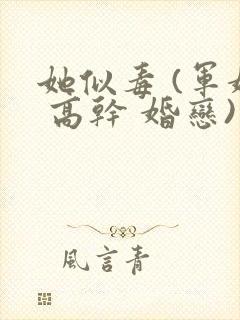 她似毒(軍婚
高幹 婚戀)
風言青